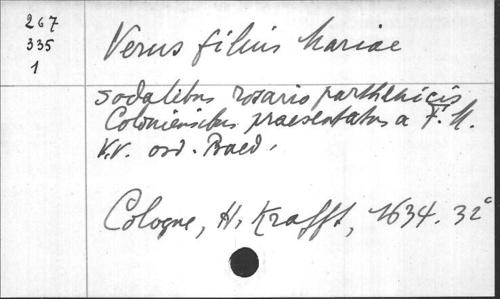 267
335
1
Verus filius Mariae
sodalibus rosario parthenicis
Coloniensibus praesentatus a F. M.
V.V. ord. Praed.
Cologne, H. Krafft, 1634. 32°